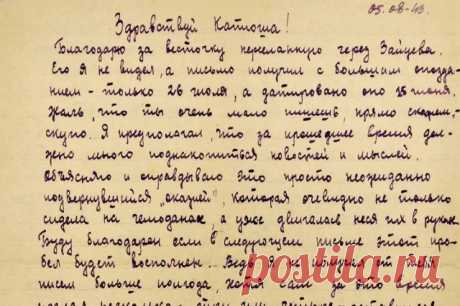 05.08.43.
Здравствуй Катюша!
Благодарю за весточку пересланную через Зайцева.
Его я не видел, а письмо получил с большим опозда-
нием – только 26 июля, а датировано оно 15 июня.
Жаль, что ты очень мало пишешь, прямо скажем,
скупо. Я предполагал, что за прошедшее время дол-
жно много поднакопиться новостей и мыслей.
Объясняю и оправдываю это просто неожиданно
подвернувшийся „оказией", которая очевидно не только
сидела на чемоданах, а уже двигалась неся их в руках.
Буду благодарен если в следующем письме этот про-
бел будет восполнен... Ведь я не получал от тебя
писем больше полгода, хотя сам за это время
posidelki.ru